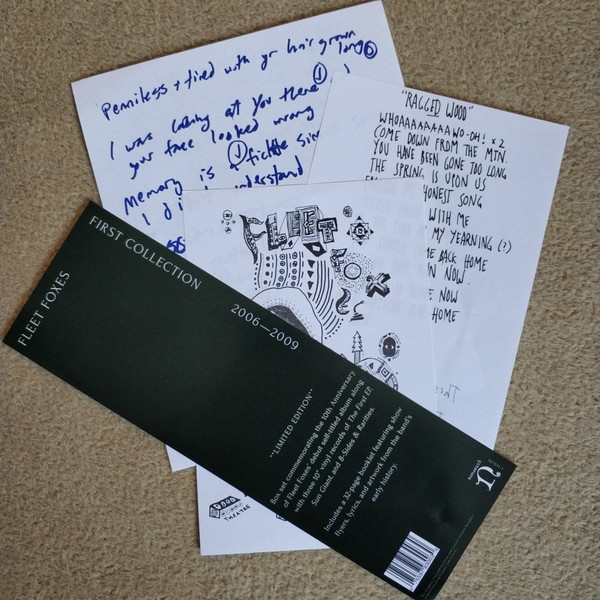 Penniless + tired with yr hair grown long
I was looking at you there
your face looked wrong
Memory is a fickle
I didn't understand
"RAGGED WOOD"
WHOAAAAAAAAWO-OH! x2
COME DOWN FROM THE MTN.
YOU HAVE BEEN GONE TOO LONG
THE SPRING IS UPON US
HONEST SONG
WITH ME
MY YEARNING (?)
BACK HOME
NOW.
NOW
HOME
FLEET
FOX
THEATRE
FLEET FOXES
FIRST COLLECTION
2006—2009
**LIMITED EDITION**
Box set commemorating the 10th Anniversary
of Fleet Foxes' debut self-titled album along
with three 10" vinyl records of The First EP,
Sun Giant, and B-Sides & Rarities.
Includes a 32-page booklet featuring show
flyers, lyrics, and artwork from the band's
early history.